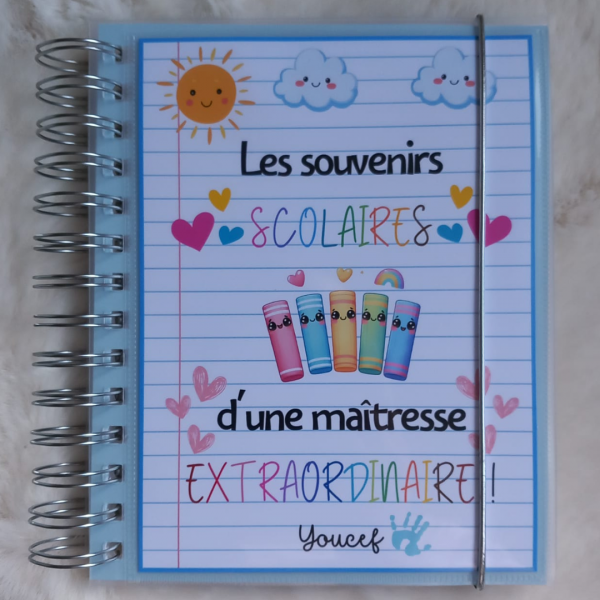 Les souvenirs
SCOLAIRES
d'une maîtresse
EXTRAORDINAIRE !
Youcef